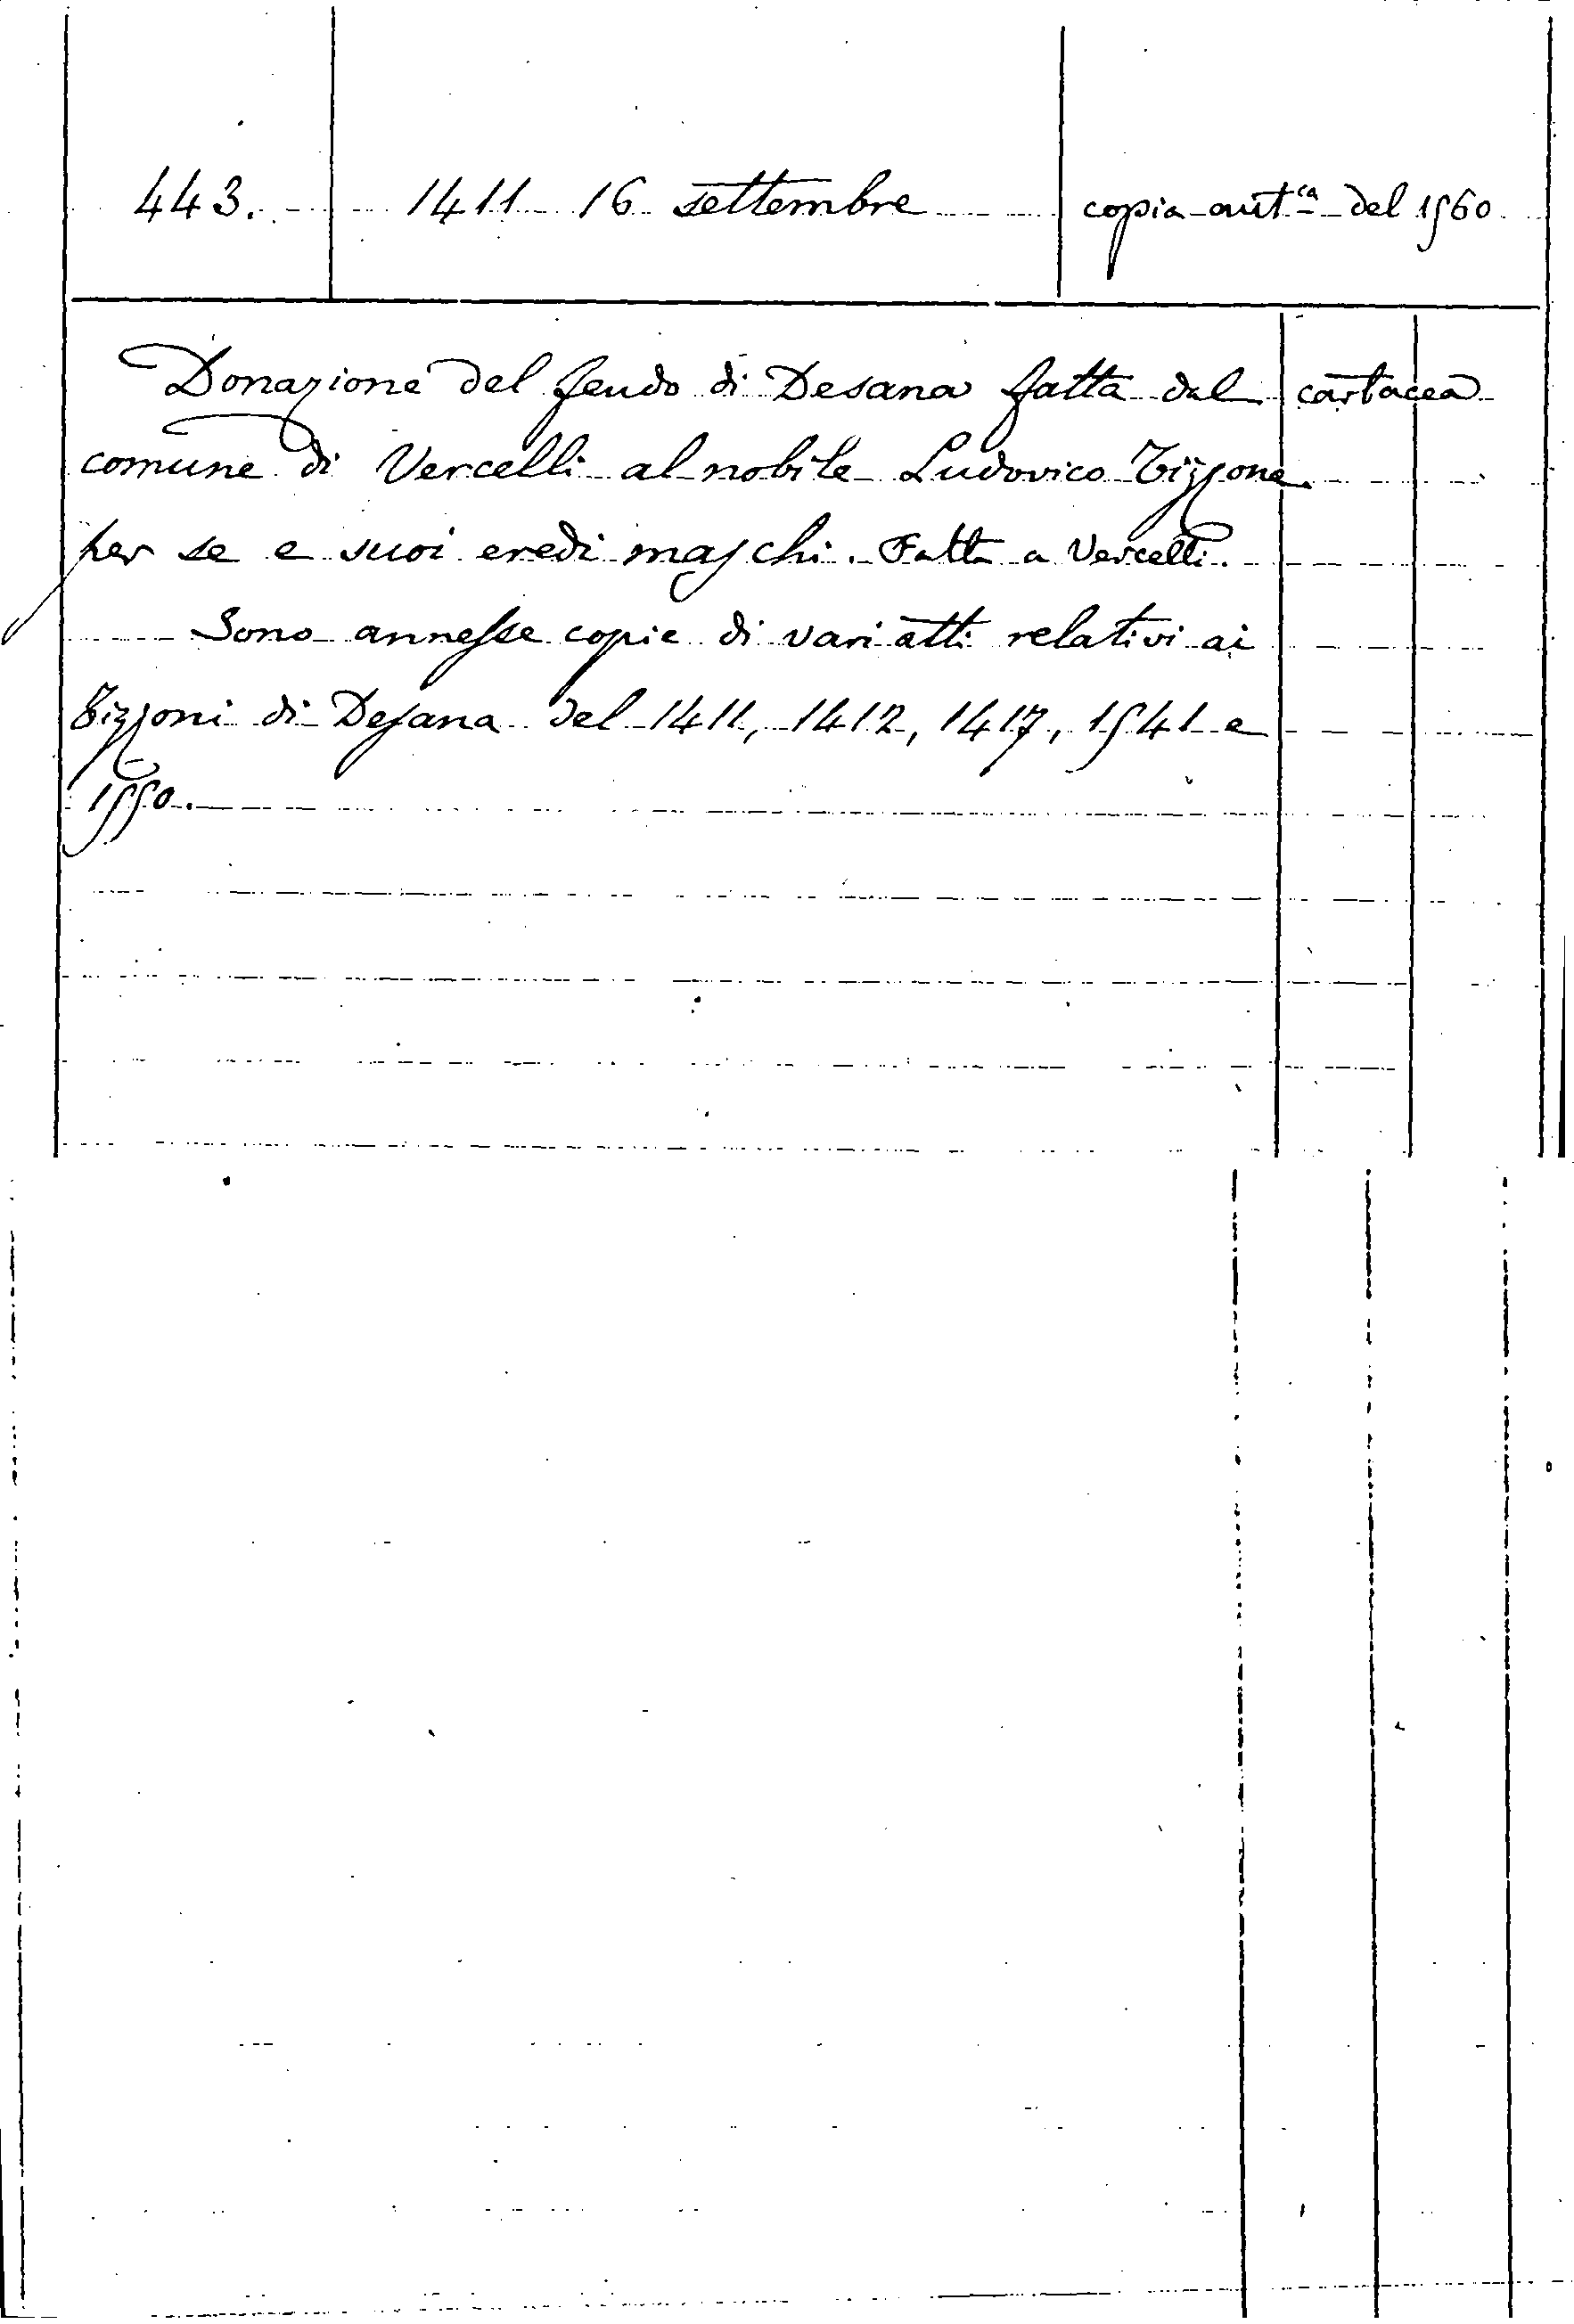 443. 1411 16 settembre copia aut.ca del 1560
Donazione del feudo di Desana fatta dal cartacea
comune di Vercelli al nobile Ludovico Tizzone
per se e suoi eredi maschi. Fatta a Vercelli.
Sono annesse copie di vari atti relativi ai
Tizzoni di Desana del 1411, 1412, 1417, 1541 e
1550.